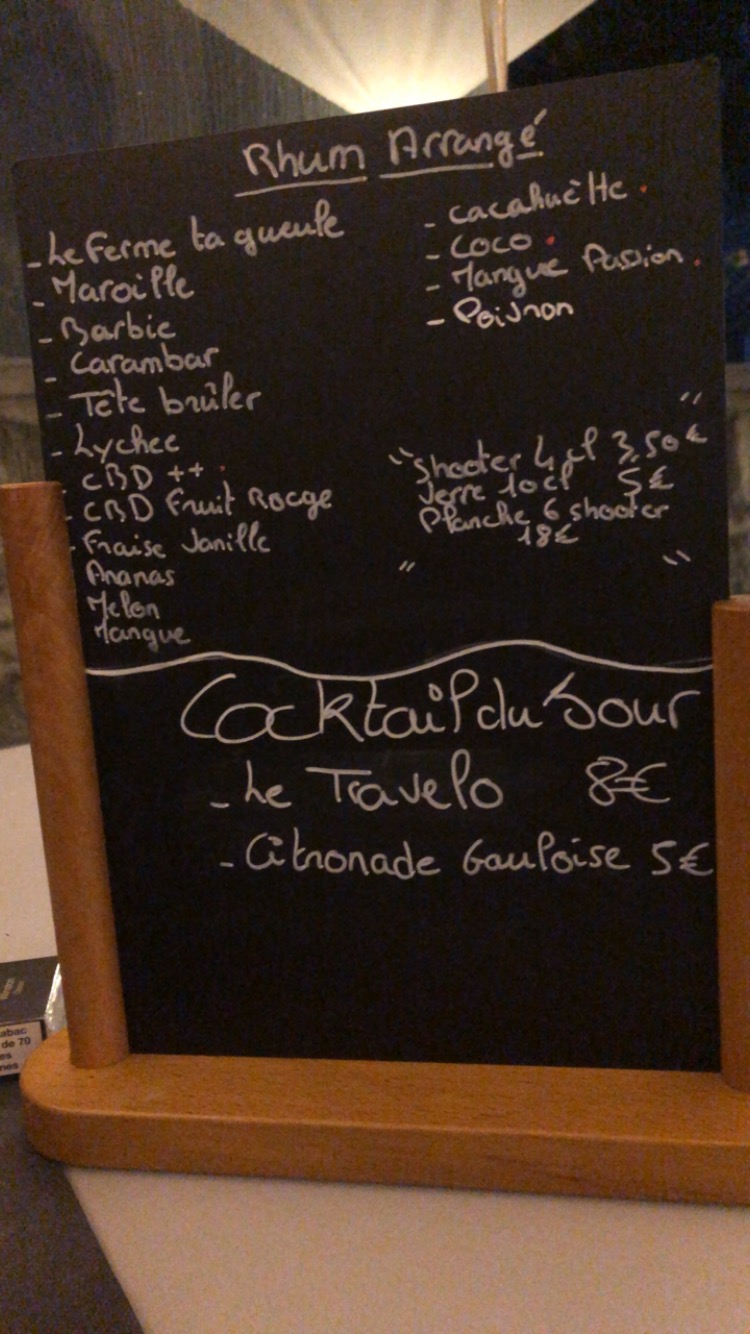 Rhum Arrangé
- Le Ferme ta gueule
- Maroille
- Barbie
- Carambar
- Tête brûler
- Lychee
- CBD ++
- CBD Fruit Rocge
- Fraise Vanille
Ananas
Melon
Mangue
- Cacahuètte
- Coco
- Mangue Passion
- Poivron
"Shooter 4 cl 3,50€"
Verre 10cl 5€
Planche 6 shooter
18€
" "
Cocktail du Jour
- Le Travelo 8€
- Citronade Gauloise 5€
abac
de 70
es
nes